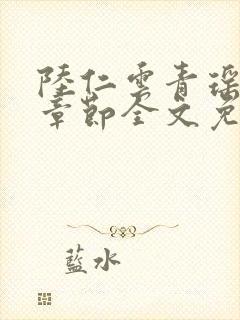 陸仁雲青瑶
章節全文免
藍水